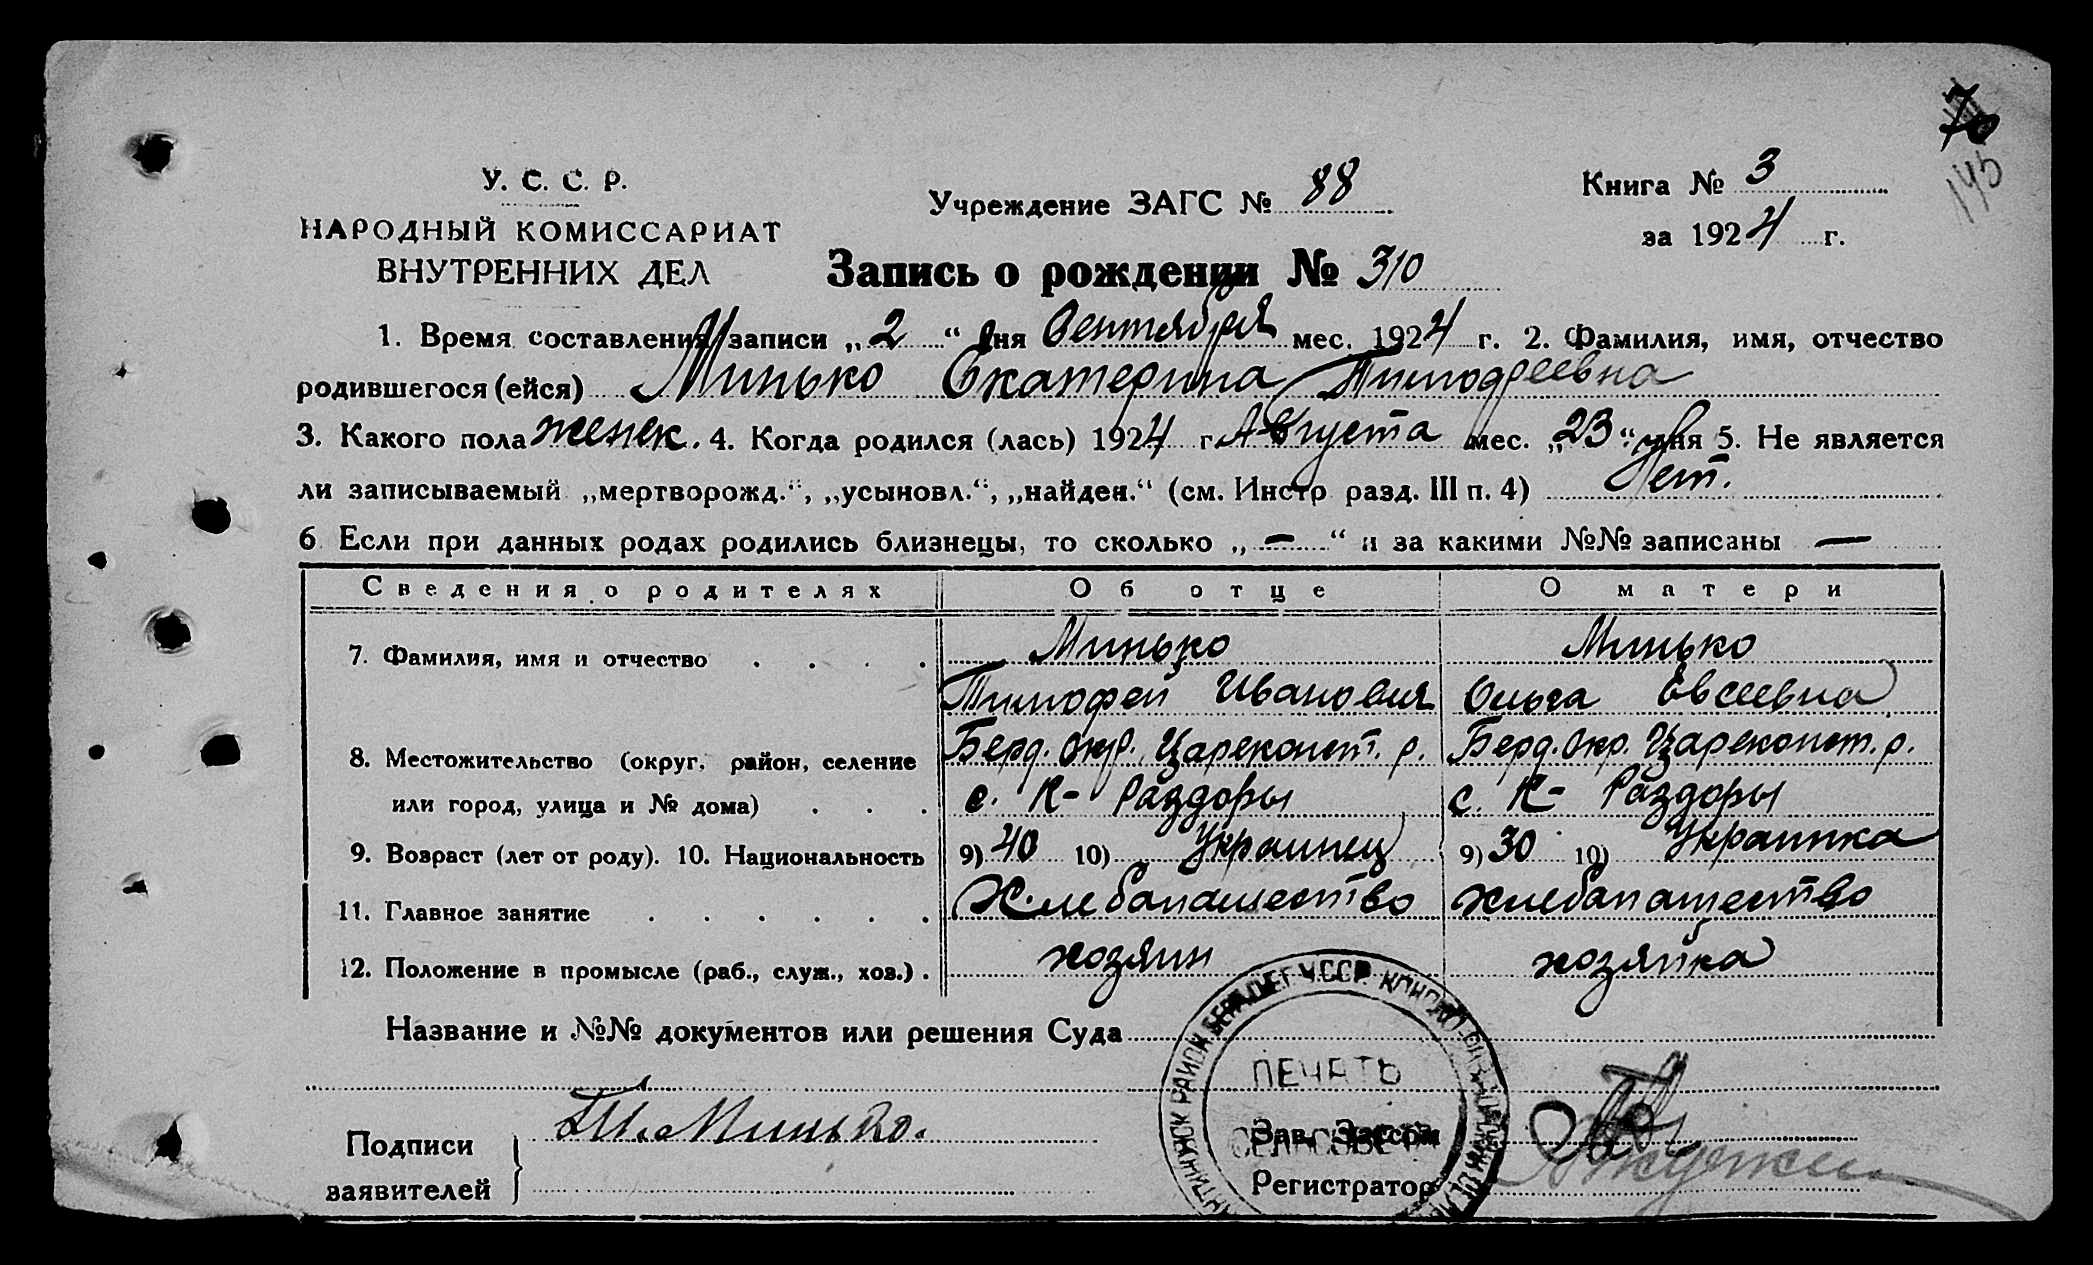 70
145
У. С. С. Р.
НАРОДНЫЙ КОМИССАРИАТ
ВНУТРЕННИХ ДЕЛ
Учреждение ЗАГС № 88
Книга № 3
за 1924 г.
Запись о рождении № 310
1. Время составления записи „2“ дня Сентября мес. 1924 г. 2. Фамилия, имя, отчество
родившегося (ейся) Минько Екатерина Тимофеевна
3. Какого пола женск. 4. Когда родился (лась) 1924 г. Августа мес. „23“ дня 5. Не является
ли записываемый „мертворожд.“, „усыновл.“, „найден.“ (см. Инстр разд. III п. 4) Нет.
6 Если при данных родах родились близнецы, то сколько „—“ и за какими №№ записаны —
Сведения о родителях Об отце О матери
7. Фамилия, имя и отчество . . . . Минько Минько
Тимофей Иванович Ольга Евсеевна
8. Местожительство (округ, район, селение Берд. окр. Цареконст. р. Берд. Окр. Цареконст. р.
или город, улица и № дома) . . . с. К- Раздоры с. К- Раздоры
9. Возраст (лет от роду). 10. Национальность 9) 40 10) Украинец 9) 30 10) Украинка
11. Главное занятие . . . . . . Хлебопашество хлебопашество
12. Положение в промысле (раб., служ., хоз.) . хозяин хозяйка
Название и №№ документов или решения Суда
ПЕЧАТЬ
Подписи
заявителей
Т.И. Минько.
Зав. Загсом
Регистратор